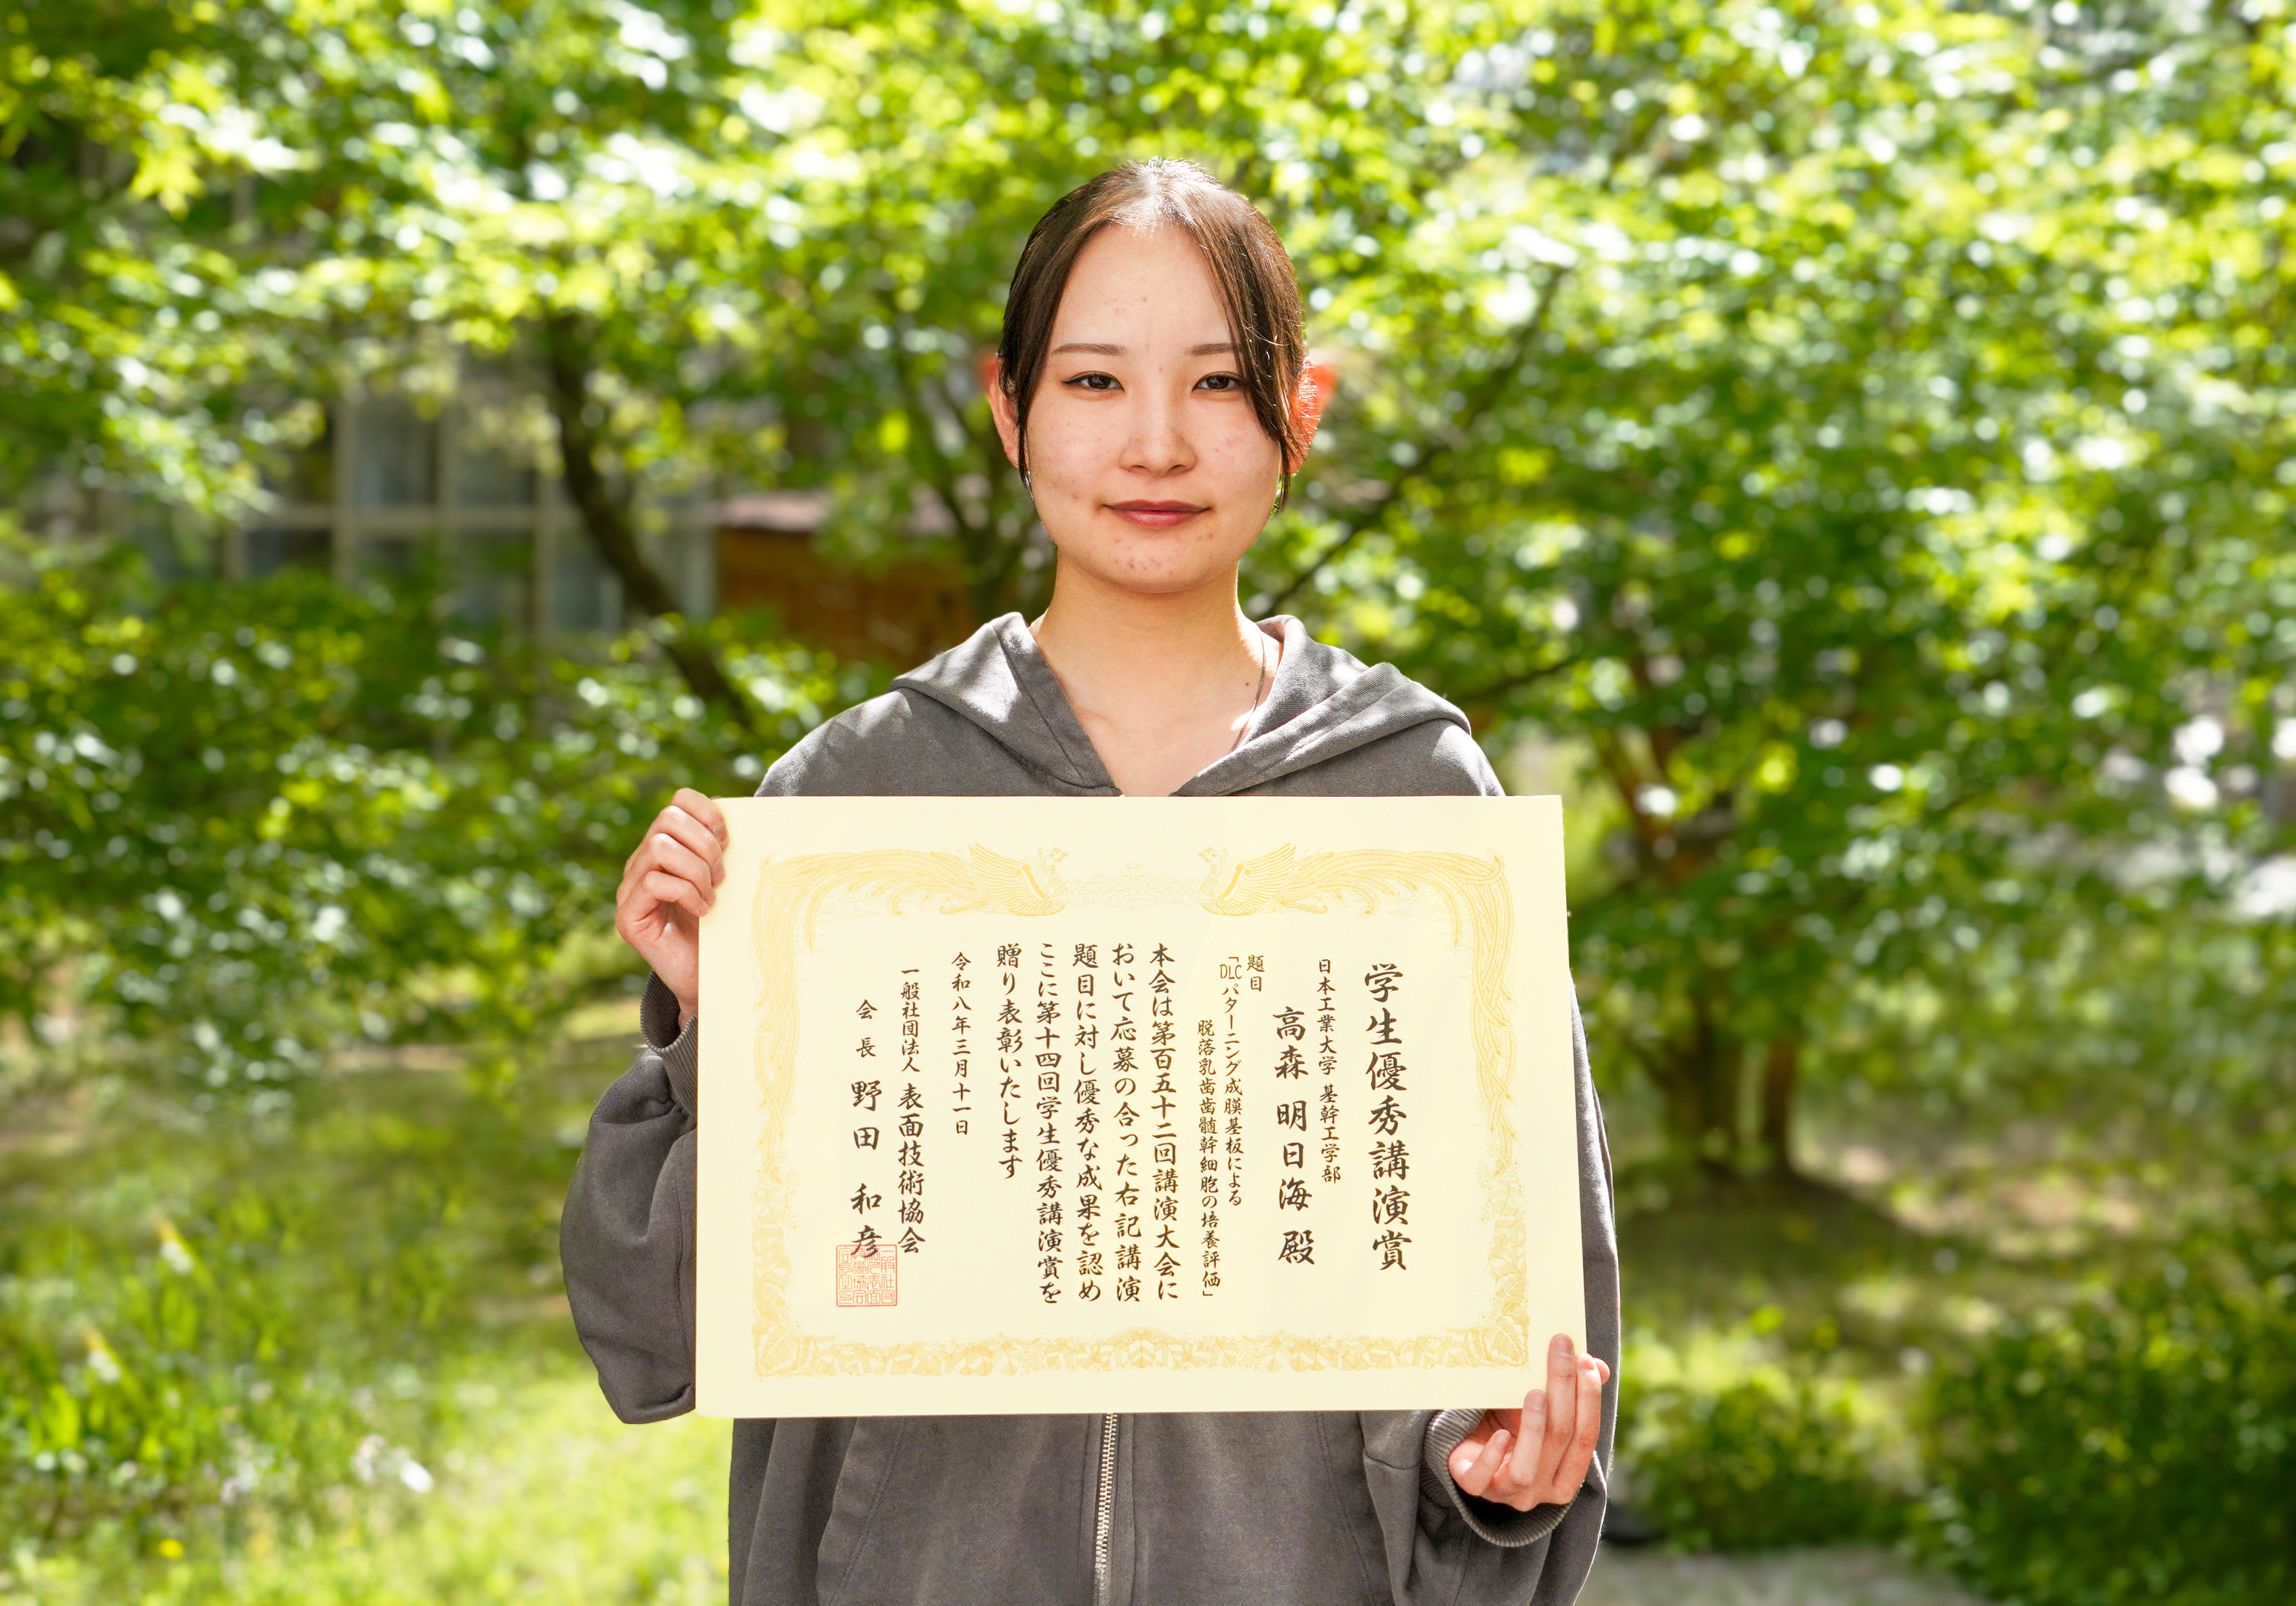 学生優秀講演賞
日本工業大学 基幹工学部
高森 明日海 殿
題目
「DLCパターニング成膜基板による
脱落乳歯歯髄幹細胞の培養評価」
本会は第百五十二回講演大会に
おいて応募の合った右記講演
題目に対し優秀な成果を認め
ここに第十四回学生優秀講演賞を
贈り表彰いたします
令和八年三月十一日
一般社団法人 表面技術協会
会長 野田 和彦